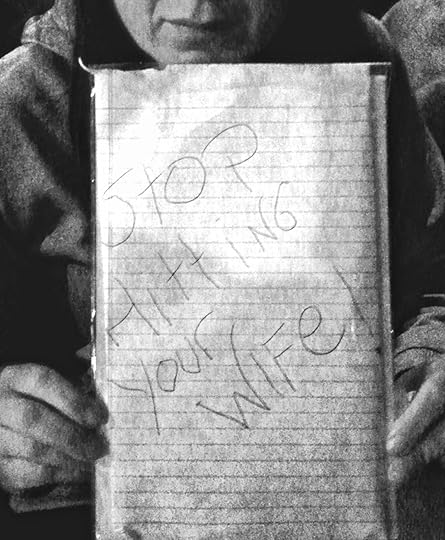 STOP
HITTING
Your
WIFe!